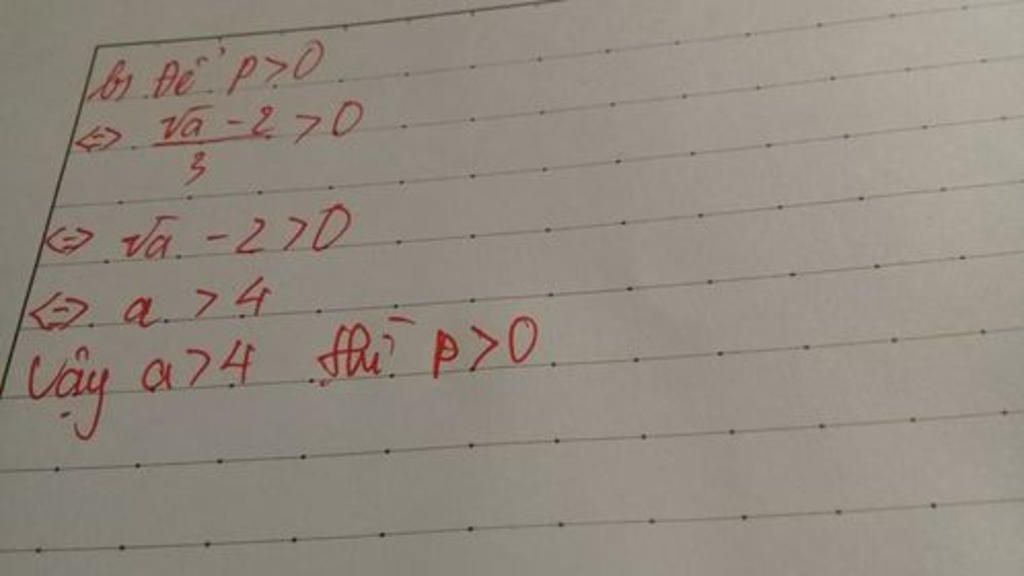 b, Để P>0
<=> (√a - 2)/3 > 0
<=> √a - 2 > 0
<=> a > 4
Vậy a > 4 thì P>0